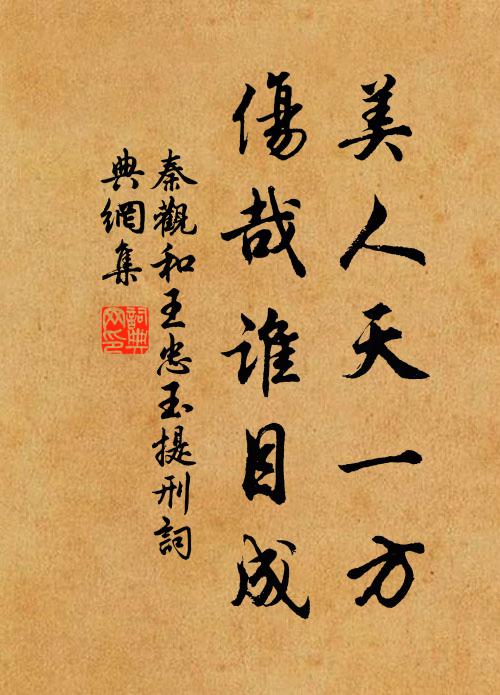 美人天一方
傷哉誰目成
秦觀和王忠玉提刑詞
典網集
詞典網印